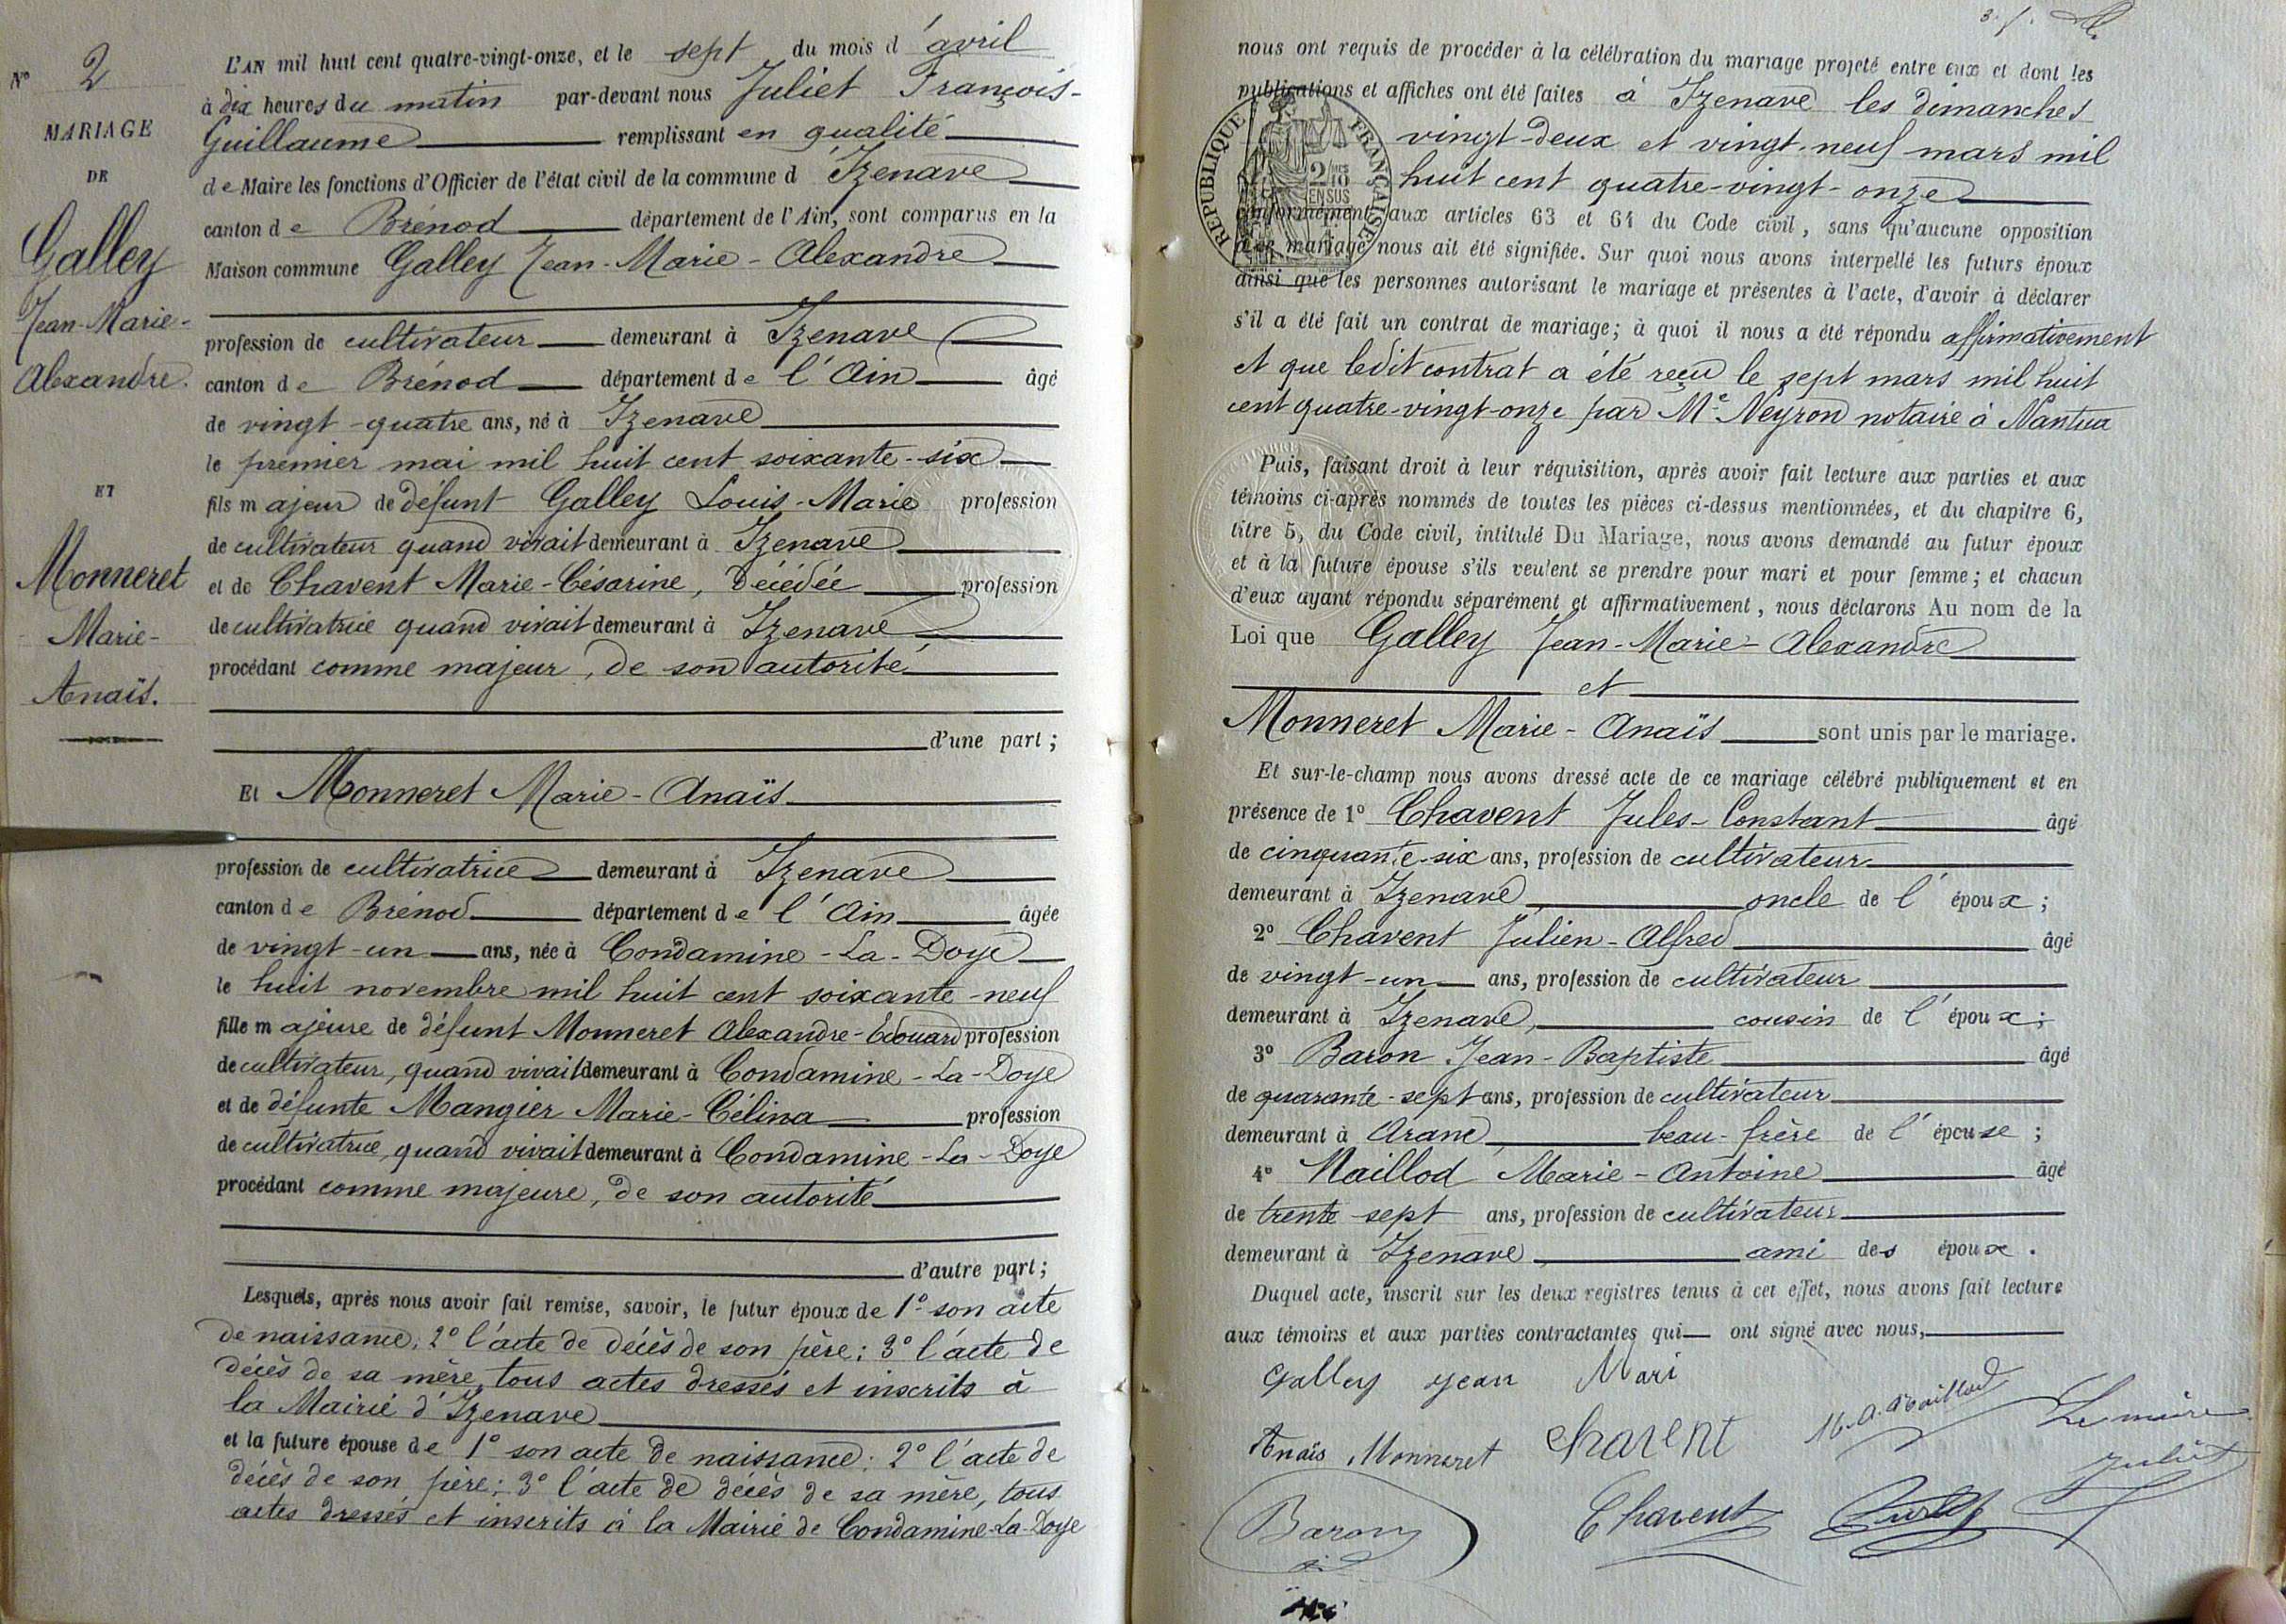 N° 2
MARIAGE
DE
Galley
Jean-Marie-
Alexandre.
ET
Monneret
Marie-
Anaïs.
L'AN mil huit cent quatre-vingt-onze, et le sept du mois d'avril
à dix heures du matin par-devant nous Juliet François-
Guillaume remplissant en qualité
de Maire les fonctions d'Officier de l'état civil de la commune d'Izenave
canton de Brénod département de l'Ain, sont comparus en la
Maison commune Galley Jean-Marie-Alexandre
profession de cultivateur demeurant à Izenave
canton de Brénod département de l'Ain âgé
de vingt-quatre ans, né à Izenave
le premier mai mil huit cent soixante-six
fils majeur de défunt Galley Louis-Marie profession
de cultivateur quand vivait demeurant à Izenave
et de Chavent Marie-Césarine, Décédée profession
de cultivatrice quand vivait demeurant à Izenave
procédant comme majeur, de son autorité
d'une part;
Et Monneret Marie-Anaïs
profession de cultivatrice demeurant à Izenave
canton de Brénod département de l'Ain âgée
de vingt-un ans, née à Condamine-La-Doye
le huit novembre mil huit cent soixante-neuf
fille majeure de défunt Monneret Alexandre-Edouard profession
de cultivateur, quand vivait demeurant à Condamine-La-Doye
et de défunte Mangier Marie-Célina profession
de cultivatrice, quand vivait demeurant à Condamine-La-Doye
procédant comme majeure, de son autorité
d'autre part;
Lesquels, après nous avoir fait remise, savoir, le futur époux de 1° son acte
de naissance; 2° l'acte de décès de son père; 3° l'acte de
décès de sa mère, tous actes dressés et inscrits à
la Mairie d'Izenave
et la future épouse de 1° son acte de naissance; 2° l'acte de
décès de son père; 3° l'acte de décès de sa mère, tous
actes dressés et inscrits à la Mairie de Condamine-La-Doye
nous ont requis de procéder à la célébration du mariage projeté entre eux et dont les
publications et affiches ont été faites à Izenave les dimanches
vingt-deux et vingt-neuf mars mil
huit cent quatre-vingt-onze
REPUBLIQUE FRANÇAISE
2/10 EN SUS
conformément aux articles 63 et 64 du Code civil, sans qu'aucune opposition
à ce mariage nous ait été signifiée. Sur quoi nous avons interpellé les futurs époux
ainsi que les personnes autorisant le mariage et présentes à l'acte, d'avoir à déclarer
s'il a été fait un contrat de mariage; à quoi il nous a été répondu affirmativement
et que ledit contrat a été reçu le sept mars mil huit
cent quatre-vingt-onze par Me Neyron notaire à Nantua
Puis, faisant droit à leur réquisition, après avoir fait lecture aux parties et aux
témoins ci-après nommés de toutes les pièces ci-dessus mentionnées, et du chapitre 6,
titre 5, du Code civil, intitulé Du Mariage, nous avons demandé au futur époux
et à la future épouse s'ils veulent se prendre pour mari et pour femme; et chacun
d'eux ayant répondu séparément et affirmativement, nous déclarons Au nom de la
Loi que Galley Jean-Marie-Alexandre
et
Monneret Marie-Anaïs sont unis par le mariage.
Et sur-le-champ nous avons dressé acte de ce mariage célébré publiquement et en
présence de 1° Chavent Jules-Constant âgé
de cinquante-six ans, profession de cultivateur
demeurant à Izenave, oncle de l'époux;
2° Chavent Julien-Alfred âgé
de vingt-un ans, profession de cultivateur
demeurant à Izenave, cousin de l'époux;
3° Baron Jean-Baptiste âgé
de quarante-sept ans, profession de cultivateur
demeurant à Aranc, beau-frère de l'épouse;
4° Maillod Marie-Antoine âgé
de trente-sept ans, profession de cultivateur
demeurant à Izenave, ami des époux.
Duquel acte, inscrit sur les deux registres tenus à cet effet, nous avons fait lecture
aux témoins et aux parties contractantes qui ont signé avec nous,
Galley jean Mari
M. A. Maillod Le maire
Anaïs Monneret Chavent
Juliet
Baron Chavent